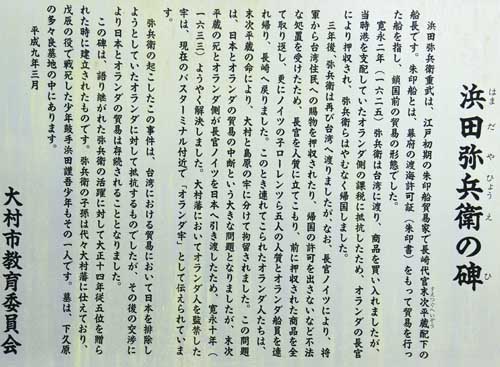 浜田弥兵衛の碑
はまだやひょうえひ
浜田弥兵衛重武は、江戸初期の朱印船貿易家で長崎代官末次平蔵配下の
船長です。朱印船とは、幕府の渡海許可証(朱印書)をもって貿易を行っ
た船を指し、鎖国前の貿易の形態でした。
寛永二年(一六二五)弥兵衛は台湾に渡り、商品を買い入れましたが、
当時港を支配していたオランダ側の課税に抵抗したため、オランダの長官
により押収され、弥兵衛らはやむなく帰国しました。
三年後、弥兵衛は再び台湾へ渡りましたが、なお、長官ノイツにより、将
軍から台湾住民への賜物を押収されたり、帰国の許可を出さないなど不法
な処置を受けたため、長官を人質に立てこもり、前に押収された商品を全
て取り返し、更にノイツの子ローレンツら五人の人質とオランダ船員を連
れ帰り、長崎へ戻りました。このとき連れてこられたオランダ人たちは、
末次平蔵の命により、大村と島原の牢に分けて拘留されました。この問題
は、日本とオランダの貿易の中断という大きな問題となりましたが、末次
平蔵の死とオランダ側が長官ノイツを日本へ引き渡したため、寛永十年(
一六三三)ようやく解決しました。大村藩においてオランダ人を監禁した
牢は、現在のバスターミナル付近で「オランダ牢」として伝えられていま
す。
弥兵衛の起こしたこの事件は、台湾における貿易において日本を排除し
ようとしていたオランダに対して抵抗するものでしたが、その後の交渉に
より日本とオランダの貿易は存続されることとなりました。
この碑は、語り継がれた弥兵衛の活躍に対して大正十四年従五位を贈ら
れた時に建立されたものです。弥兵衛の子孫は代々大村藩に仕えており、
戊辰の役で戦死した少年鼓手浜田謹吾少年もその一人です。墓は、下久原
の多々良墓地の中にあります。
平成九年三月
大村市教育委員会